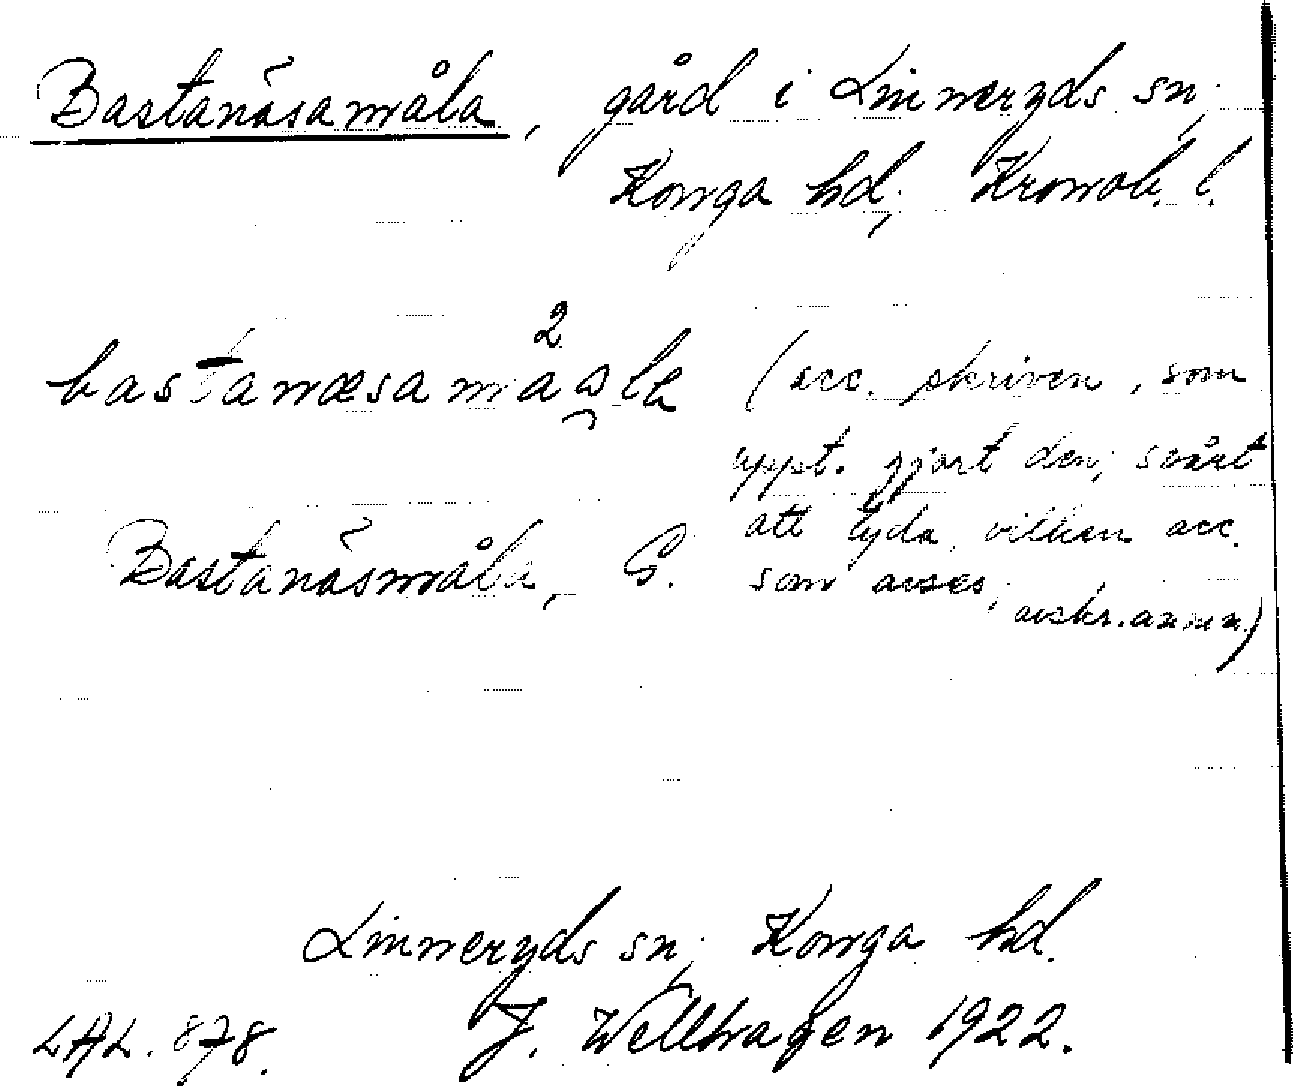 Bastanäsamåla, gård i Linneryds sn,
Konga hd, Kronob. l.
bastanæsamåla (acc. skriven, som
uppt. gjort den; svårt
att tyda, vilken acc.
som avses;
avskr. anm.)
Bastanäsmåla, G.
Linneryds sn, Konga hd.
LAL. 878. J. Wellhagen 1922.